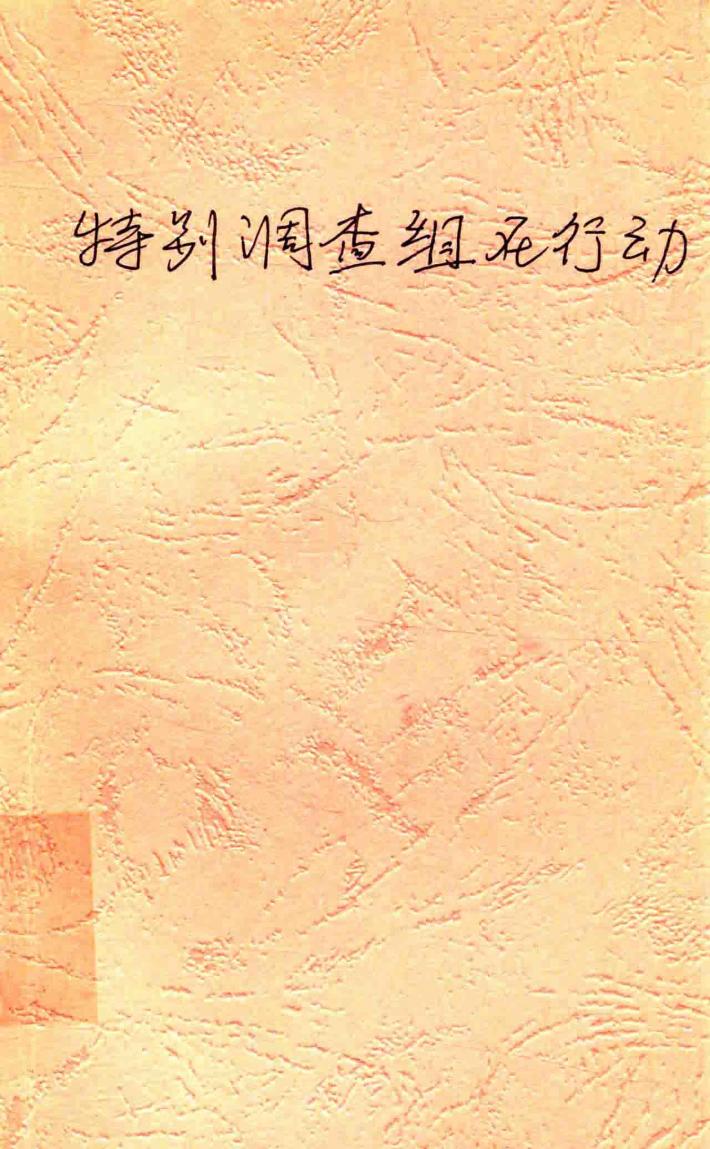 特别调查组在行动